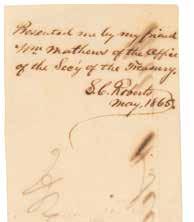 Presented me by my friend
Wm Mathews of the Office
of the Sec'y of the Treasury.
S. C. Roberts
May, 1865.